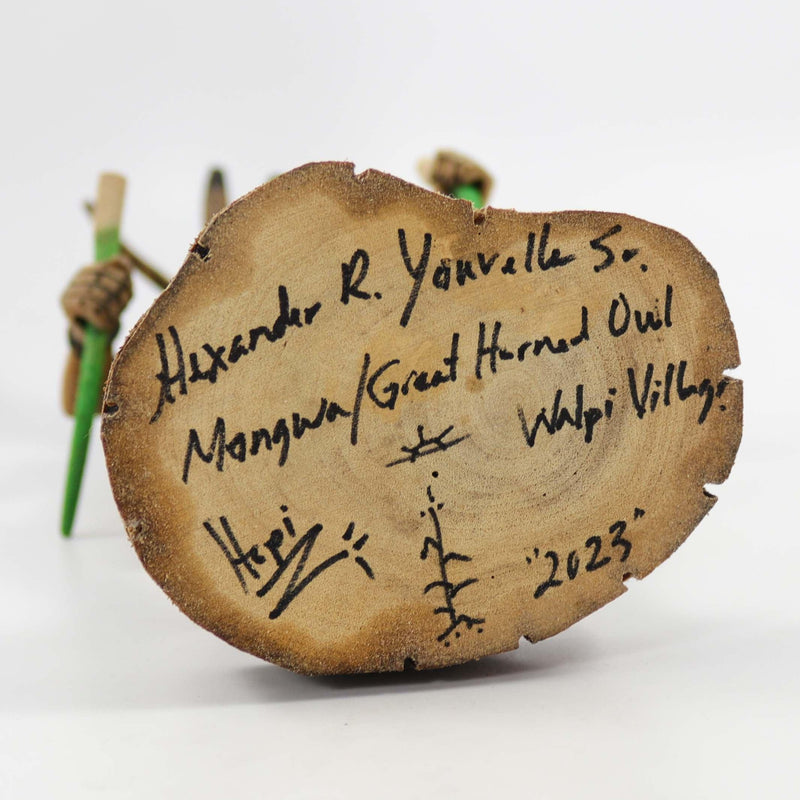 Alexander R. Youvella Sr.
Mongwa/Great Horned Owl
Walpi Village
Hopi
"2023"